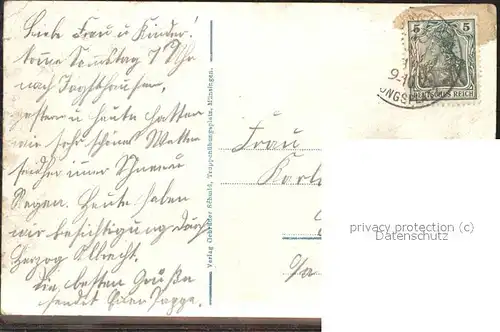 Liebe Frau u Kinder!
komme Samstag 7 Uhr
nach Jagsthausen,
gestern u heute hatten
wir sehr schönes Wetter
seither immer Schnee u
Regen. Heute haben
wir Besichtigung durch
Herzog Albrecht.
Die besten Grüße
sendet Euer
Verlag Gebrüder Schmid, Truppenübungsplatz, Münsingen.
5 5
DEUTSCHES REICH
UNGSPL
Frau
Karl
privacy protection (c)
Datenschutz